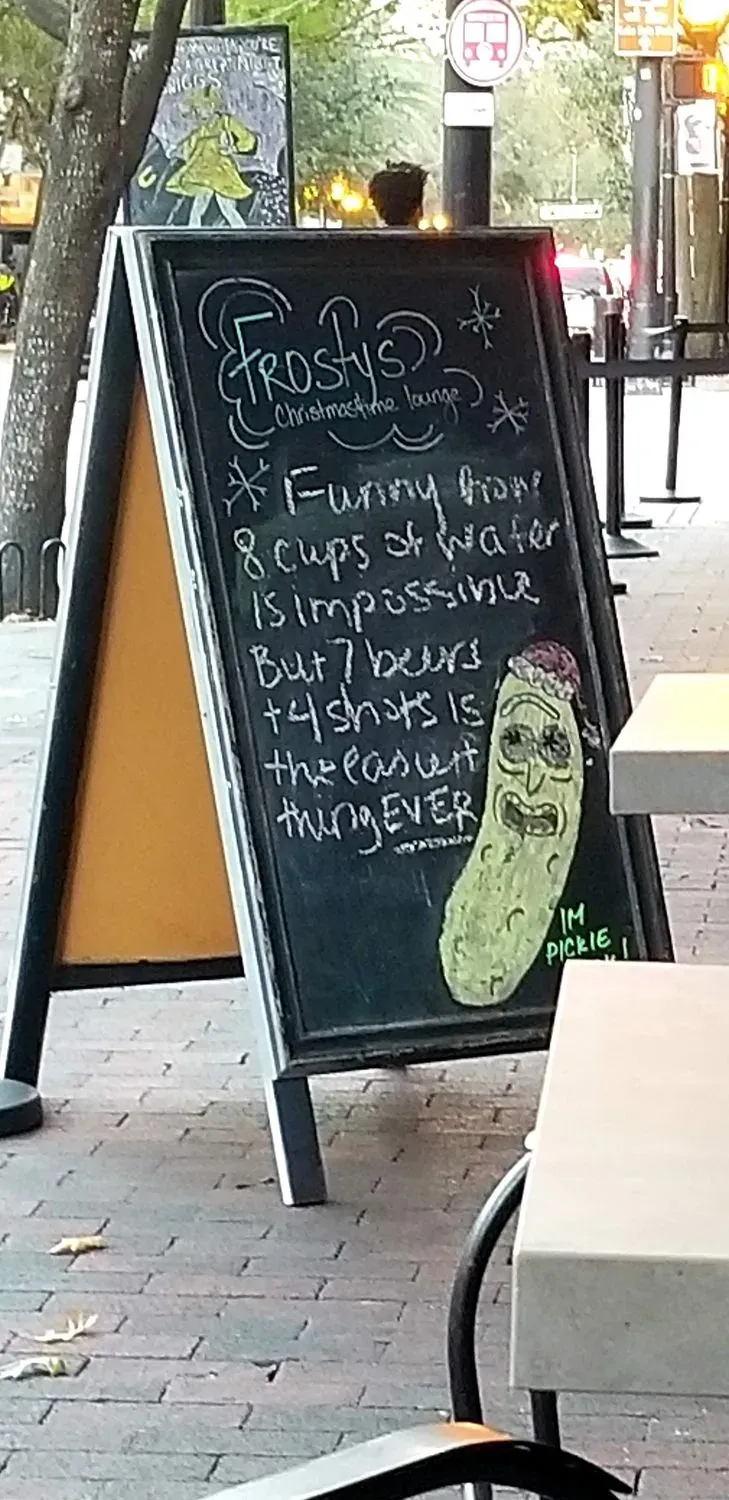 Frostys
Christmastime lounge
Funny how
8 cups of water
is impossible
But 7 beers
+4 shots is
the easiest
thing EVER
IM
PICKLE